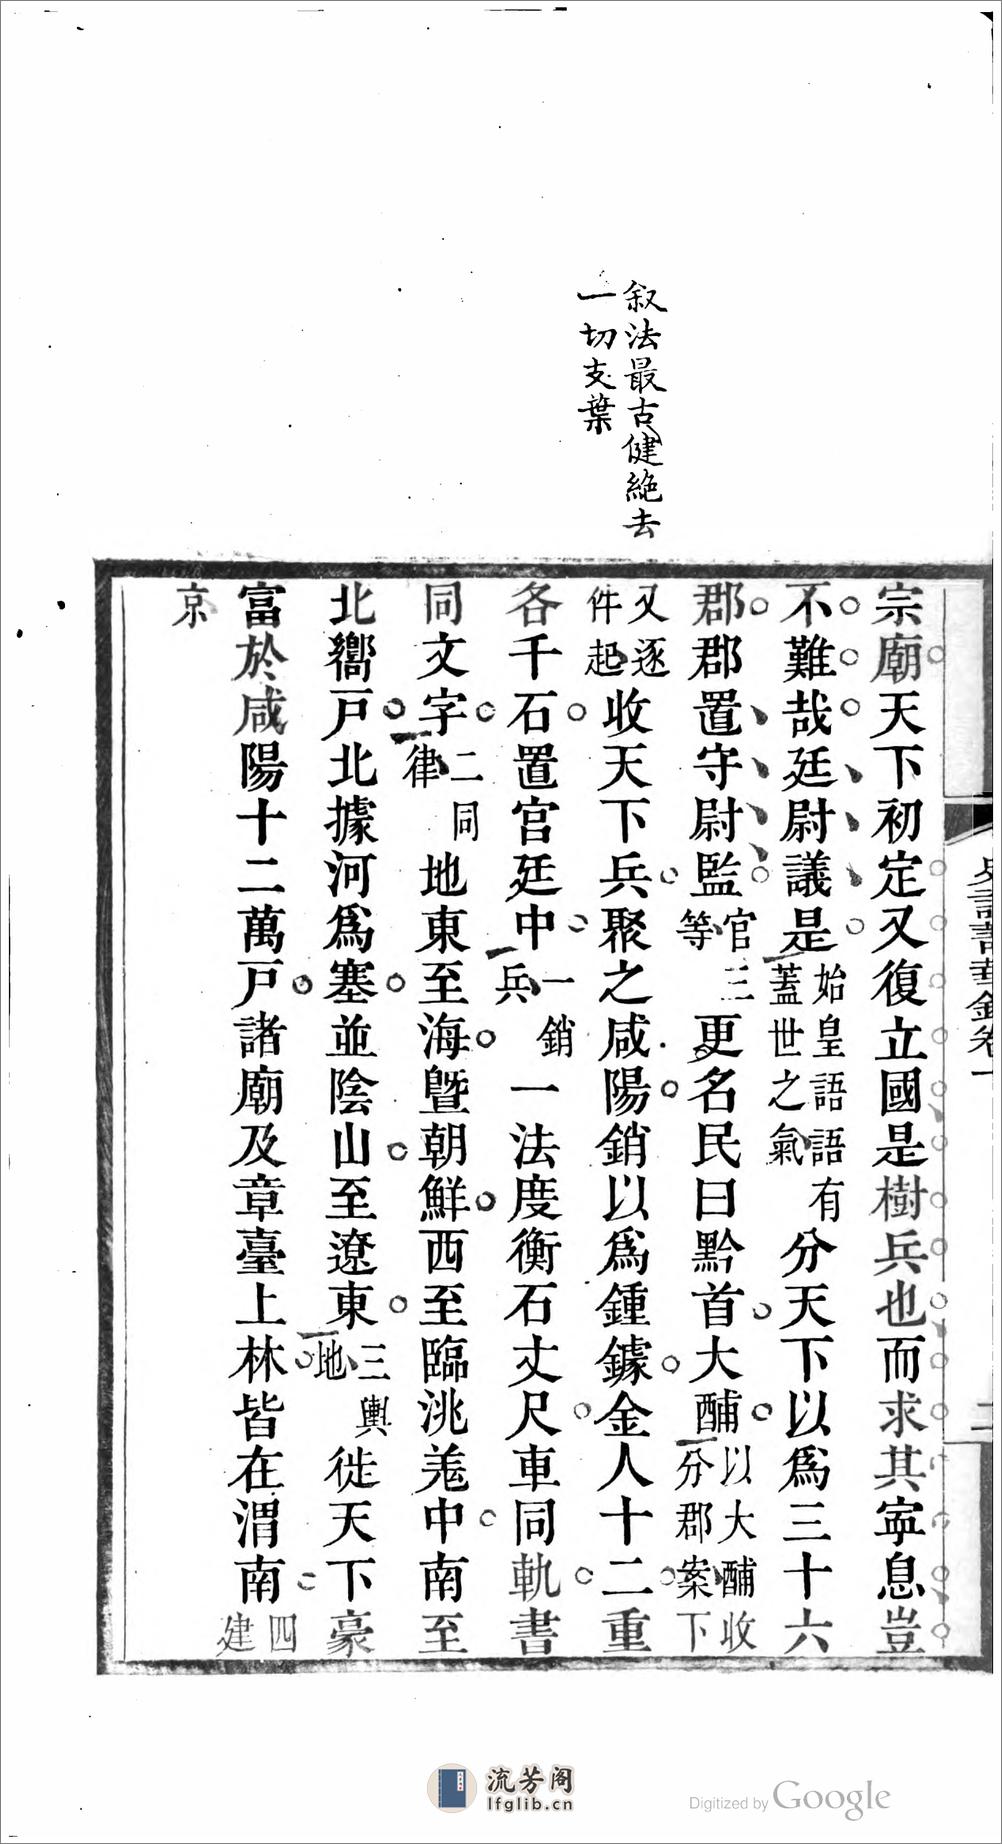 叙法最古健絶去
一切支葉
史記菁華錄卷一
二
宗廟天下初定又復立國是樹兵也而求其寧息豈
不難哉廷尉議是始皇語語有蓋世之氣分天下以爲三十六
郡郡置守尉監官三等更名民曰黔首大酺以大酺收分郡案下
又逐件起收天下兵聚之咸陽銷以爲鍾鐻金人十二重
各千石置宮廷中一銷兵一法度衡石丈尺車同軌書
同文字二同律地東至海曁朝鮮西至臨洮羌中南至
北嚮戶北據河爲塞並陰山至遼東三輿地徙天下豪
富於咸陽十二萬戶諸廟及章臺上林皆在渭南四建
京
流芳阁
lfglib.cn
Digitized by Google